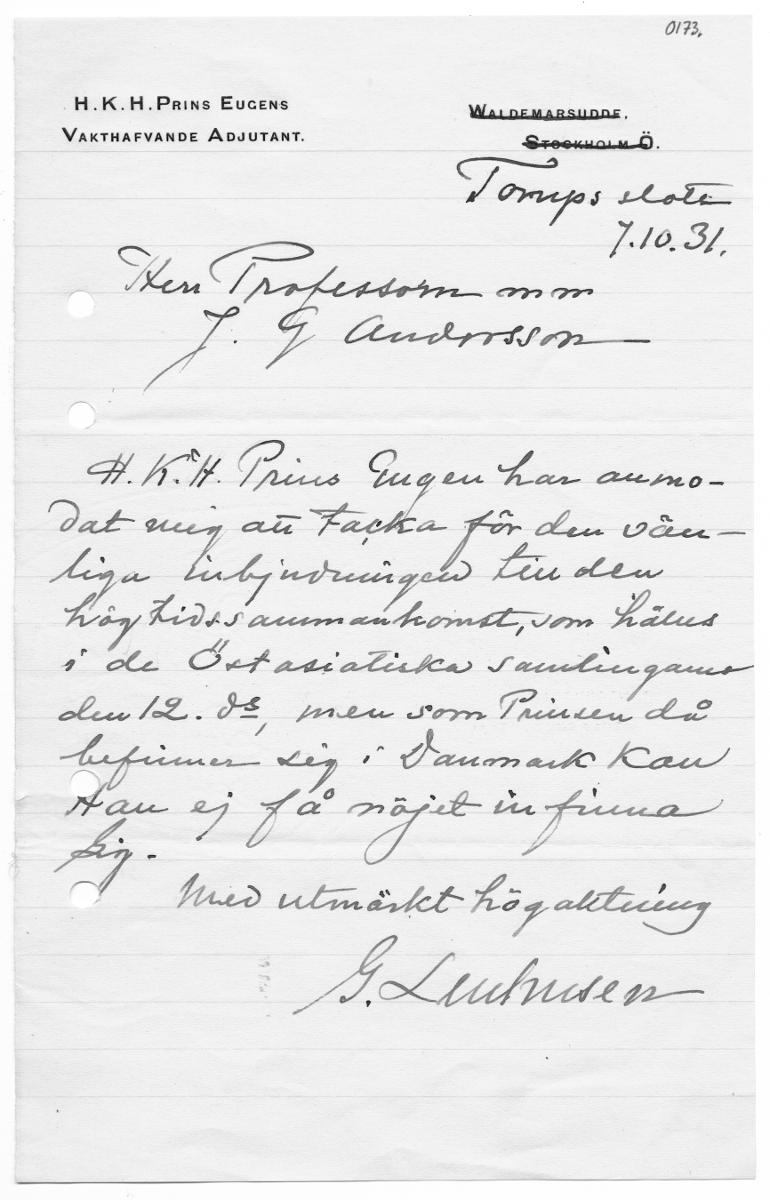 0173.
H.K.H. PRINS EUGENS
VAKTHAFVANDE ADJUTANT.
WALDEMARSUDDE,
STOCKHOLM Ö.
Torups slott
7.10.31.
Herr Professorn mm
J. G Andersson
H.K.H. Prins Eugen har anmo-
dat mig att tacka för den vän-
liga inbjudningen till den
högtidssammankomst, som hålles
i de Östasiatiska samlingarna
den 12. ds, men som Prinsen då
befinner sig i Danmark kan
Han ej få nöjet infinna
sig.
Med utmärkt högaktning
G.